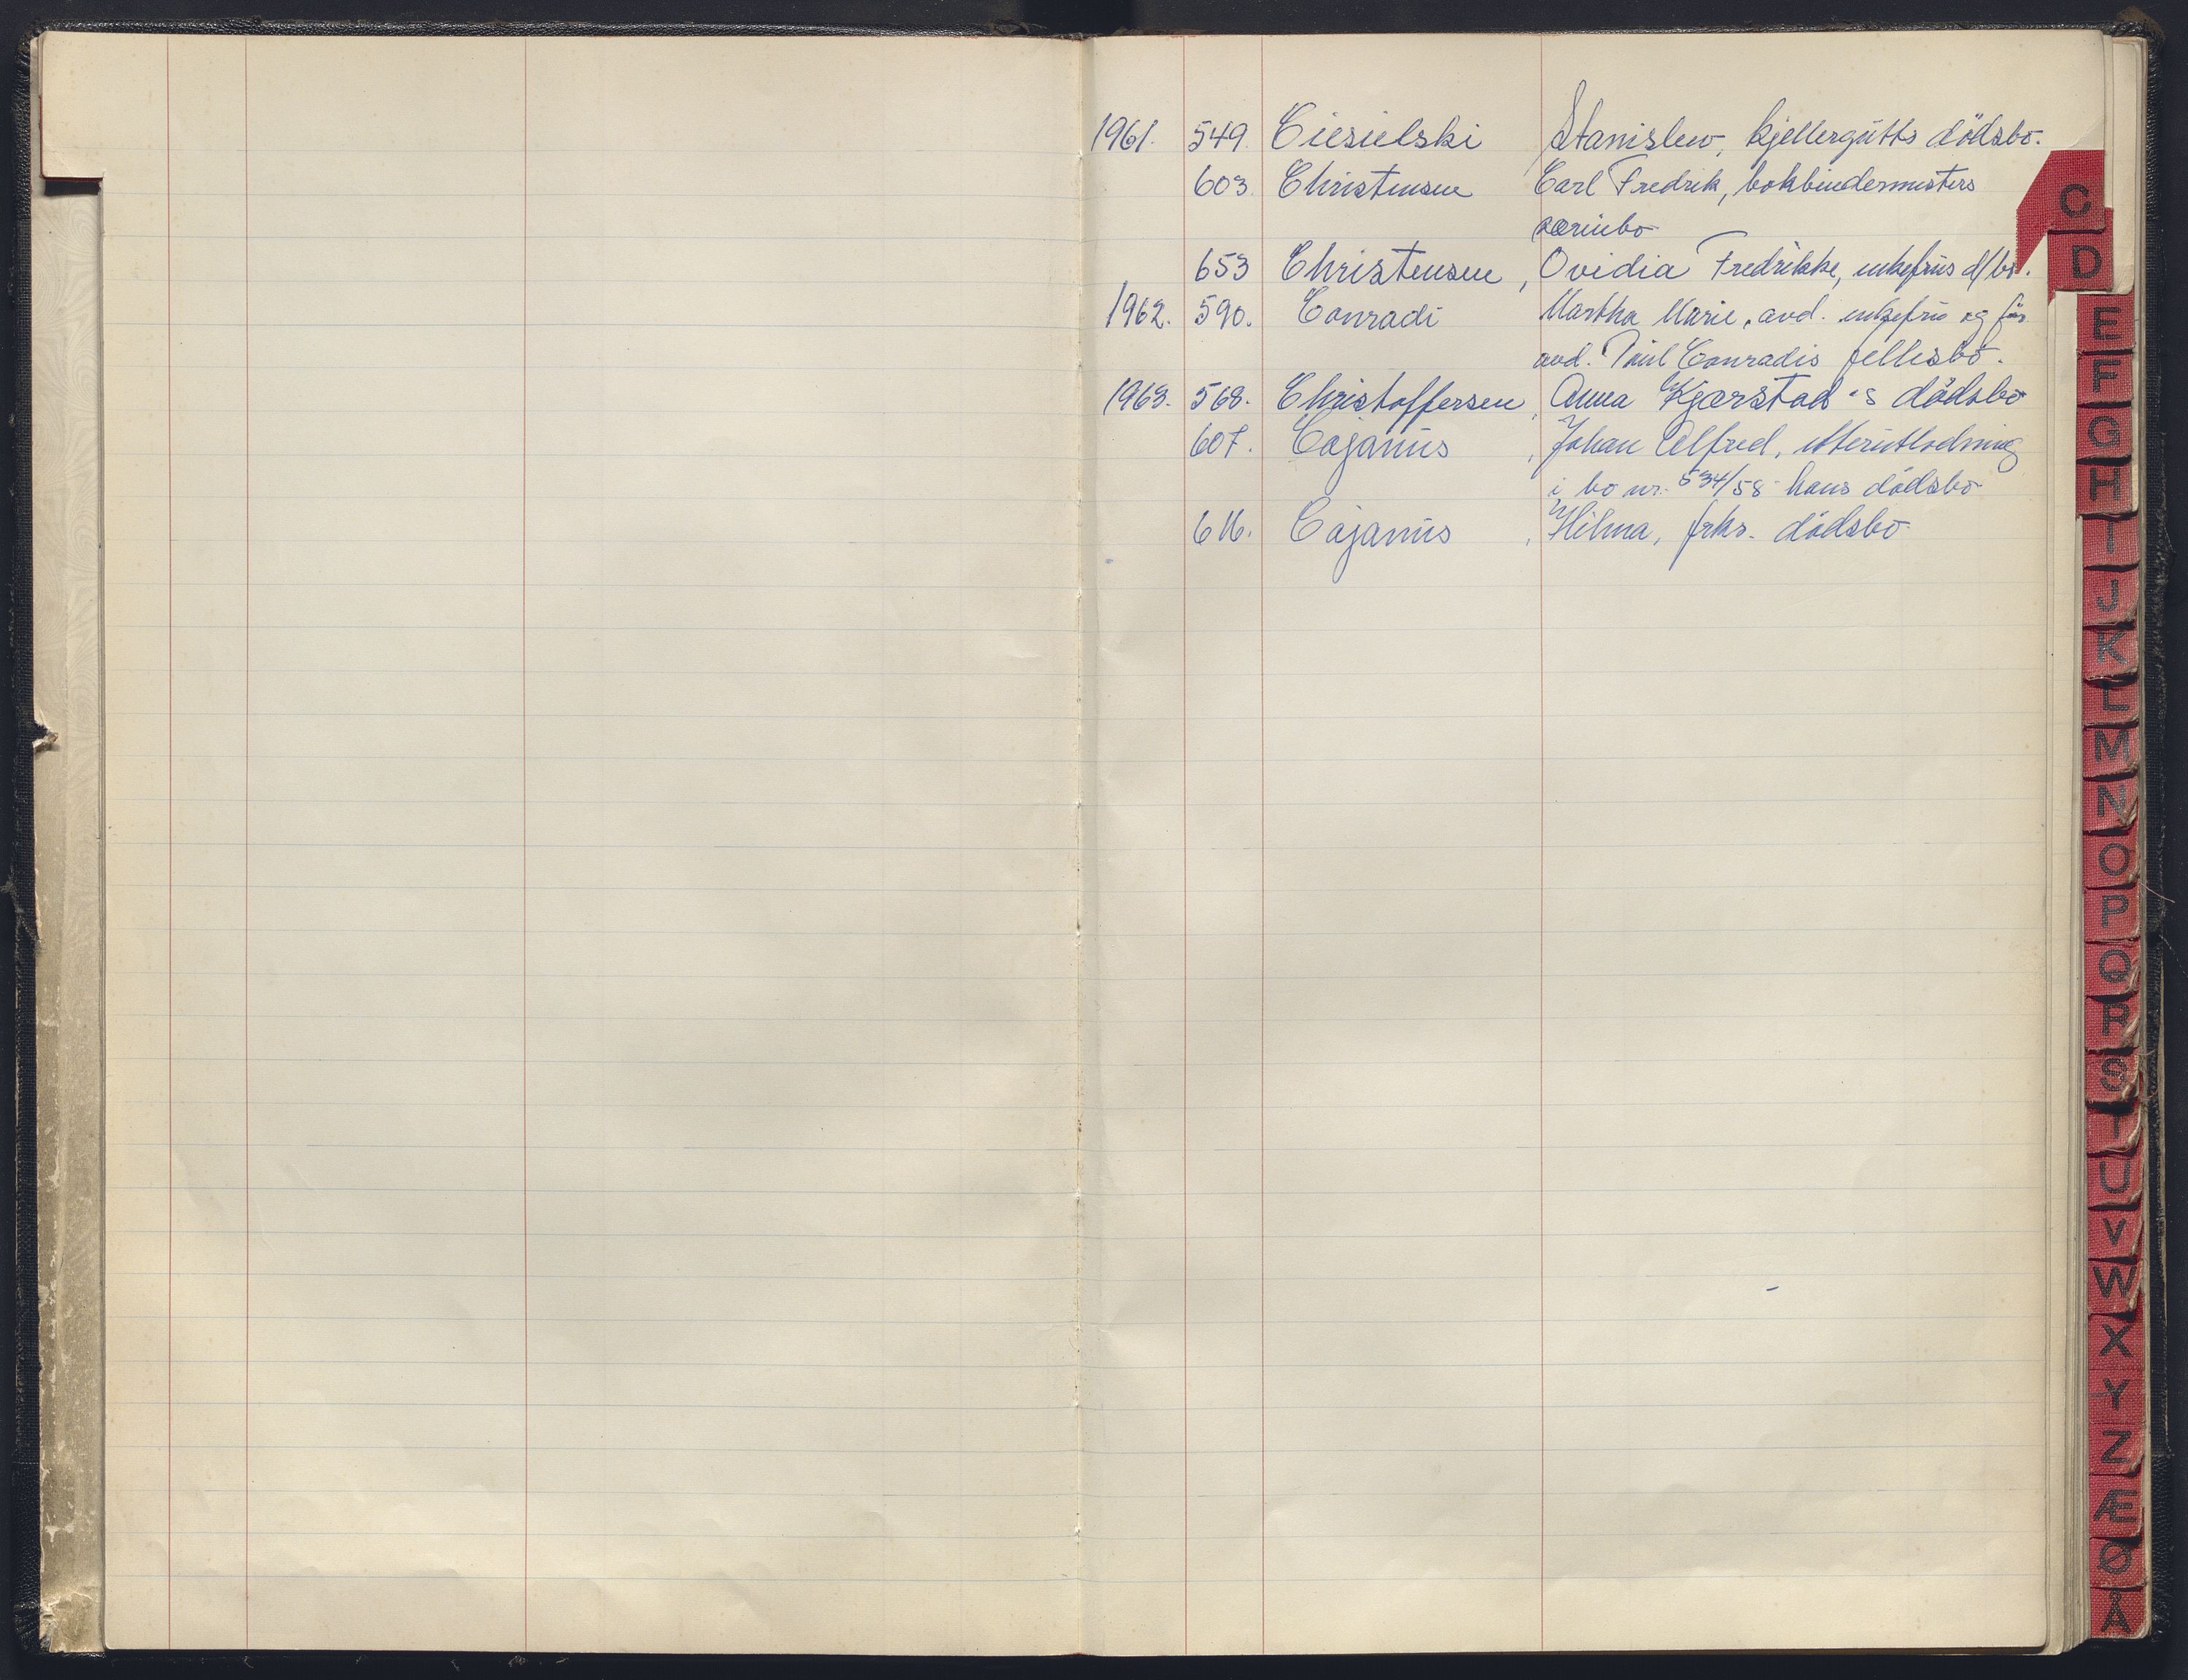 1961. 549. Ciesielski Stanislew, kjellergutts dödsbo.
603. Christensen Carl Fredrik, bokbindermesters
særiebo
653 Christensen, Ovidia Fredrikke, enkefrus d/bo.
1962. 590. Conradi Martha Marie, avd. enkefru og før
avd. Paul Conradis fellesbo.
1963. 568. Christoffersen, Anna Kjærstad's dödsbo
607. Cajanus, Johan Alfred, etterutlodning
i bo nr. 534/58 hans dödsbo
616. Cajanus, Hilma, frks. dödsbo
C
D
E
F
G
H
I
J
K
L
M
N
O
P
Q
R
S
T
U
V
W
X
Y
Z
Æ
Ø
Å